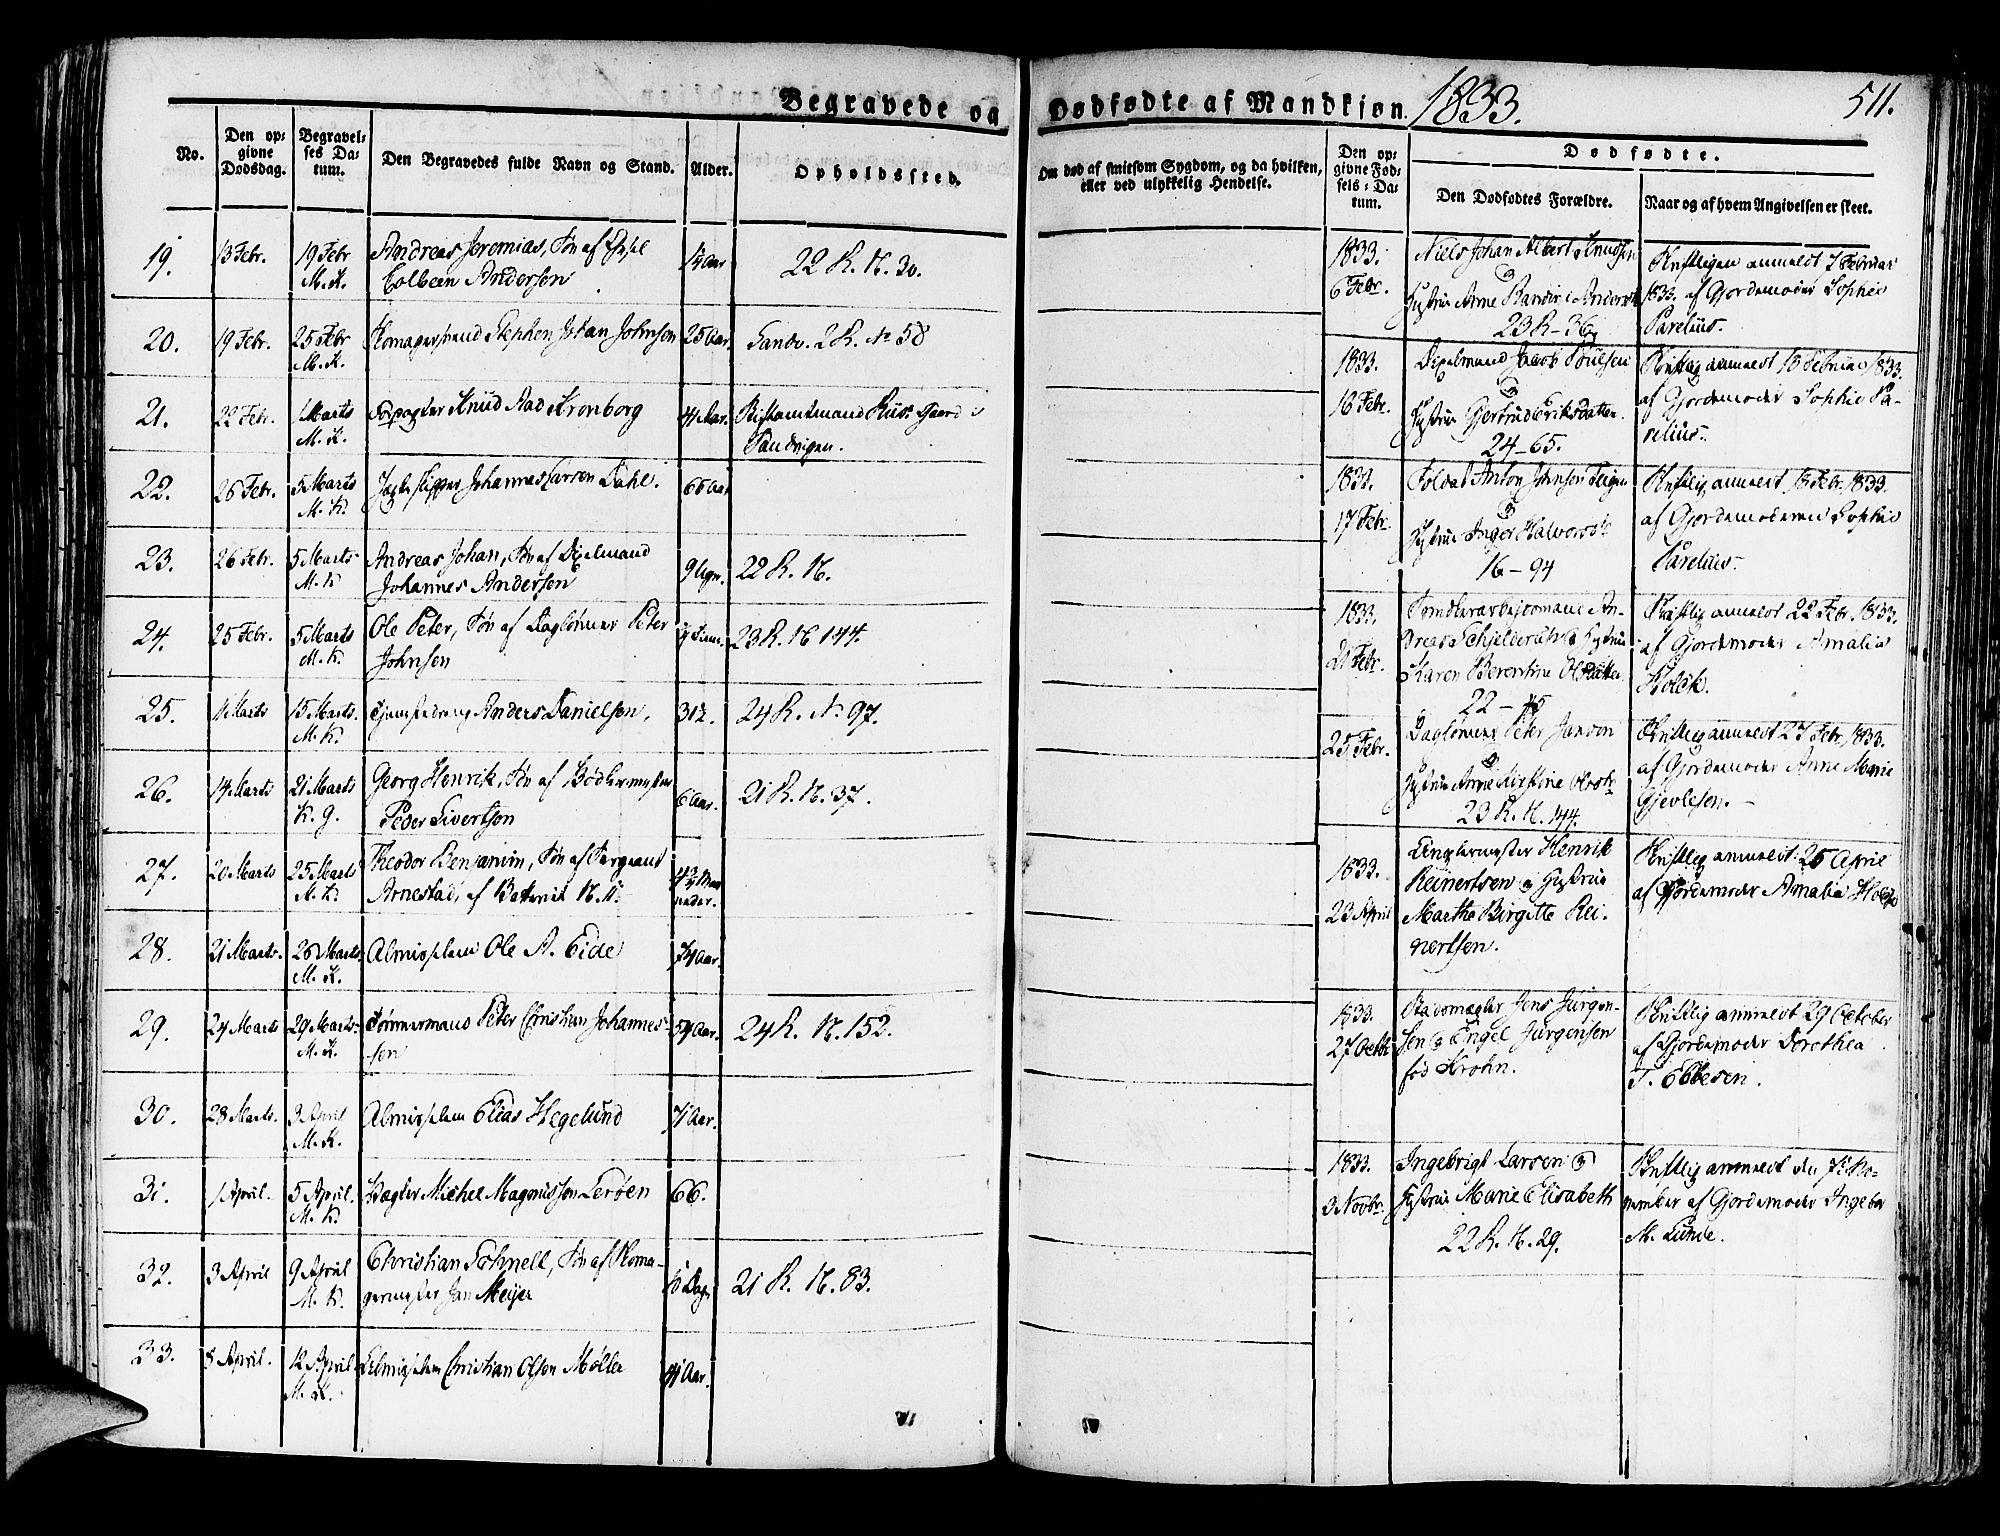 Begravede og Dødfødte af Mandkjøn. 1833. 511.
No.
Den opgivne Dødsdag.
Begravelses Datum.
Den Begravedes fulde Navn og Stand.
Alder.
Opholdssted.
Om død af smitsom Sygdom, og da hvilken,
eller ved ulykkelig Hendelse.
Den opgivne Fødsels-Datum.
Dødfødte.
Den Dødfødtes Forældre.
Naar og af hvem Angivelsen er skeet.
19. 13 Febr. 19 Febr Andreas Jeremias, Søn af 14 Aar 22 R. N. 30.
M. K. Colbeen Andersen
20. 19 Febr. 25 Febr Stephen Johan Johnsen 25 Aar. Sandv. 2 R. No 58
M. K.
21. 22 Febr. 1 Marts Knud Aad Kronborg 41 Aar.
M. K. Sandvigen.
22. 26 Febr. 5 Marts Johannes Larsen Dahl. 66 Aar
M. K.
23. 26 Febr. 5 Marts Andreas Johan, Søn af 9 Ugr. 22 R. N.
M. K. Johannes Andersen
24. 25 Febr. 5 Marts Ole Peter, Søn af Daglønner Peter 23 R. N 144.
M. K. Johnsen
25. 11 Marts 15 Marts. Anders Danielsen, 31 24 R. No 97.
M. K.
26. 14 Marts 21 Marts Georg Henrik, Søn af Bødkermester 6 Aar. 21 R. N. 37.
K. g. Peder Sivertsen
27. 20 Marts 25 Marts Theodor Benjamin, Søn af Sergeant
M. K. Arnestad, af Batterie N. II.
28. 21 Marts. 26 Marts. Almisselem Ole A. Eide 74 Aar.
M. K.
29. 24 Marts 29 Marts Tømmermand Peter Christian Johannes- 54 Aar. 24 R. N. 152.
M. K. sen
30. 28 Marts. 3 April Almisselem Elias Hegelund 71 Aar.
M. K.
31. 1 April. 5 April. Michel Magnusson Lerøen 66.
M. K.
32. 3 April 9 April Christian Schnell, Søn af Skoma- 10 Dage 21 R. N. 83.
M. K. germester Jan Meijer
33. 8 April. 12 April Christian Olsen Møller 41 Aar.
M. K.
1833. Niels Johan Albert Knudsen Skriftligen anmeldt 7 Februar
6 Febr. Hustrue Anne Randine Andersd 1833. af Gjordemoder Sophie
23 R - 36 Parelius.
1833. Jacob Poulsen Skriftlig anmeldt 18 Februar 1833.
16 Febr. Hustrue Gjertrud Eriksdatter af Gjordemoder Sophie Pa-
24 - 65. relius.
1833. Soldat Anton Johnsen Skriftlig anmeldt 18 Febr. 1833.
17 Febr. Hustrue Inger Halvorsd af Gjordemoderen Sophie
16 - 94 Parelius.
1833. An- Skriftlig anmeldt 22 Febr. 1833.
21 Febr. dreas Schjelderup & Hustrue af Gjordemoder Amalia
Karen Berentine Olsdatter Holck.
22 -
25 Febr. Daglønner Peter Janson Skriftlig anmeldt 27 Febr. 1833.
& af Gjordemoder Anne Marie
Hustrue Anne Kirstine Olsdtr Gjevlesen. -
23 R. N. 144.
1833. Henrik Skriftlig anmeldt 25 April
Reinertsen & Hustrue af Gjordemoder Amalia Holck
23 April Marthe Birgitte Rei-
nertsen.
1833. Stadsmægler Jens Jürgen- Skriftlig anmeldt 29 October
27 Octbr sen & Engel Jürgensen af Gjordemoder Dorothea
fød Krohn. T. Ebbesen.
1833. Ingebrigt Larsen & Skriftlig anmeldt den 7 No-
3 Novbr. Hustrue Marie Elisabeth vember af Gjordemoder Ingebor
22 R. N. 29. M. Lunde.